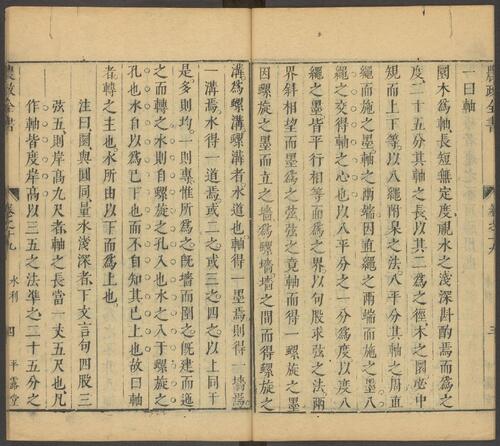 一曰軸
圜木為軸長短無定度視水之淺深斟酌焉而為之
度二十五分其軸之長以其二為之徑木之圜必中
規而上下等以八繩附臬之法八平分其軸之周直
繩而施之墨軸之兩端因直繩之兩端而施之墨八
繩之交得軸之心也以八平分之一分為度以度八
繩之墨皆平行相等而為之界以句股求弦之法兩
界斜相望而墨為之弦弦之竟軸而得一螺旋之墨
因螺旋之墨而立之墻為螺墻墻之間而得螺旋之
溝為螺溝螺溝者水道也軸得一墨焉則得一墻焉
一溝焉水得一道焉或二之或三之四之以上同于
是多則均一則專惟所為之旣墻而圍之旣建而迤
之而轉之水則自螺旋之孔入也水之入于螺旋之
孔也水自以為已下也而不自知其已上也故曰軸
者轉之主也水所由以下而為上也
注曰圜與圓同量水淺深者下文言句四股三
弦五則岸高九尺者軸之長當一丈五尺也凡
作軸皆度岸高以三五之法準之二十五分之
農政全書
卷之十九
水利
四
平露堂